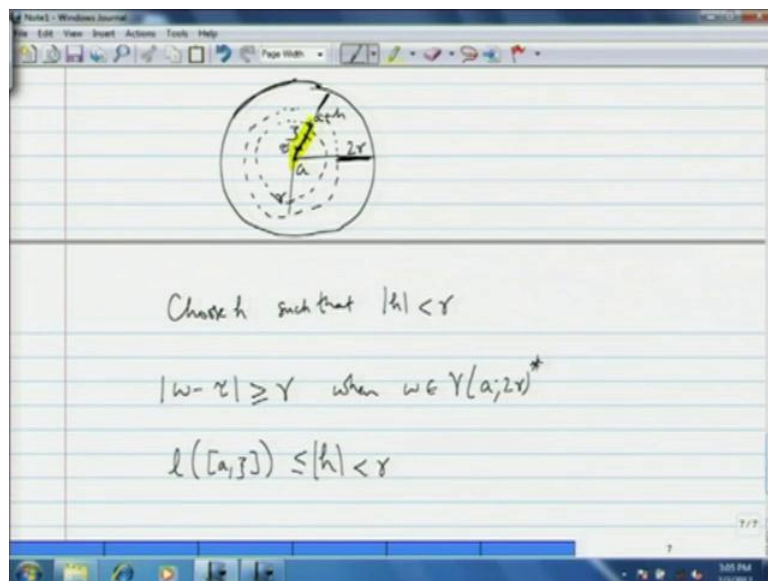 Note1 - Windows Journal
File Edit View Insert Actions Tools Help
Page Width
a+h
ζ
τ
2r
a
r
Choose h such that |h| < r
|w - τ| ≥ r when w ∈ γ(a;2r)*
l([a,ζ]) ≤ |h| < r
7/7
7
3:05 PM